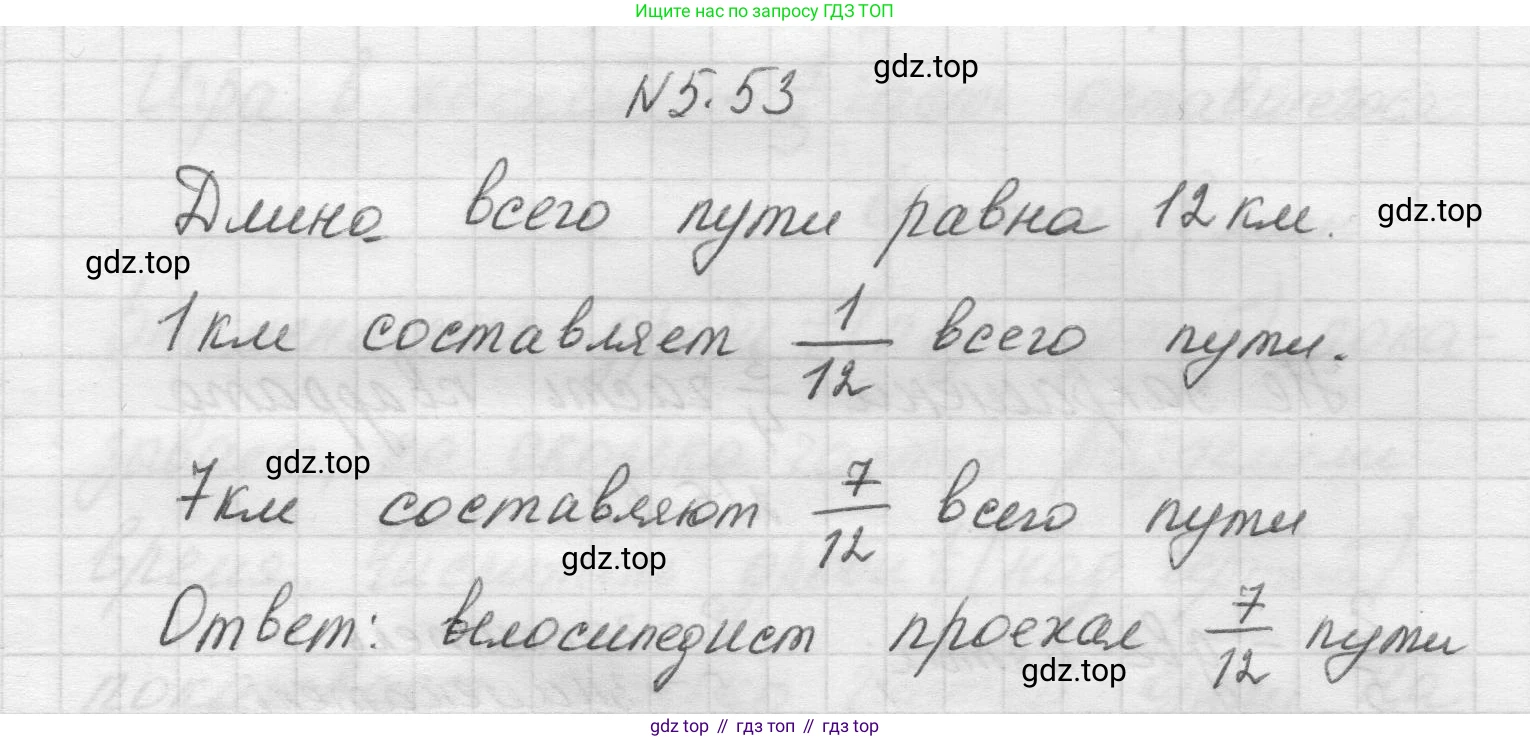 Ищите нас по запросу ГДЗ ТОП
N5.53
gdz.top
Длина всего пути равна 12 км.
gdz.top
gdz.top
1 км составляет 1/12 всего пути.
gdz.top
7 км составляют 7/12 всего пути
gdz.top
Ответ: велосипедист проехал 7/12 пути
gdz.top
gdz top // гдз топ // гдз top